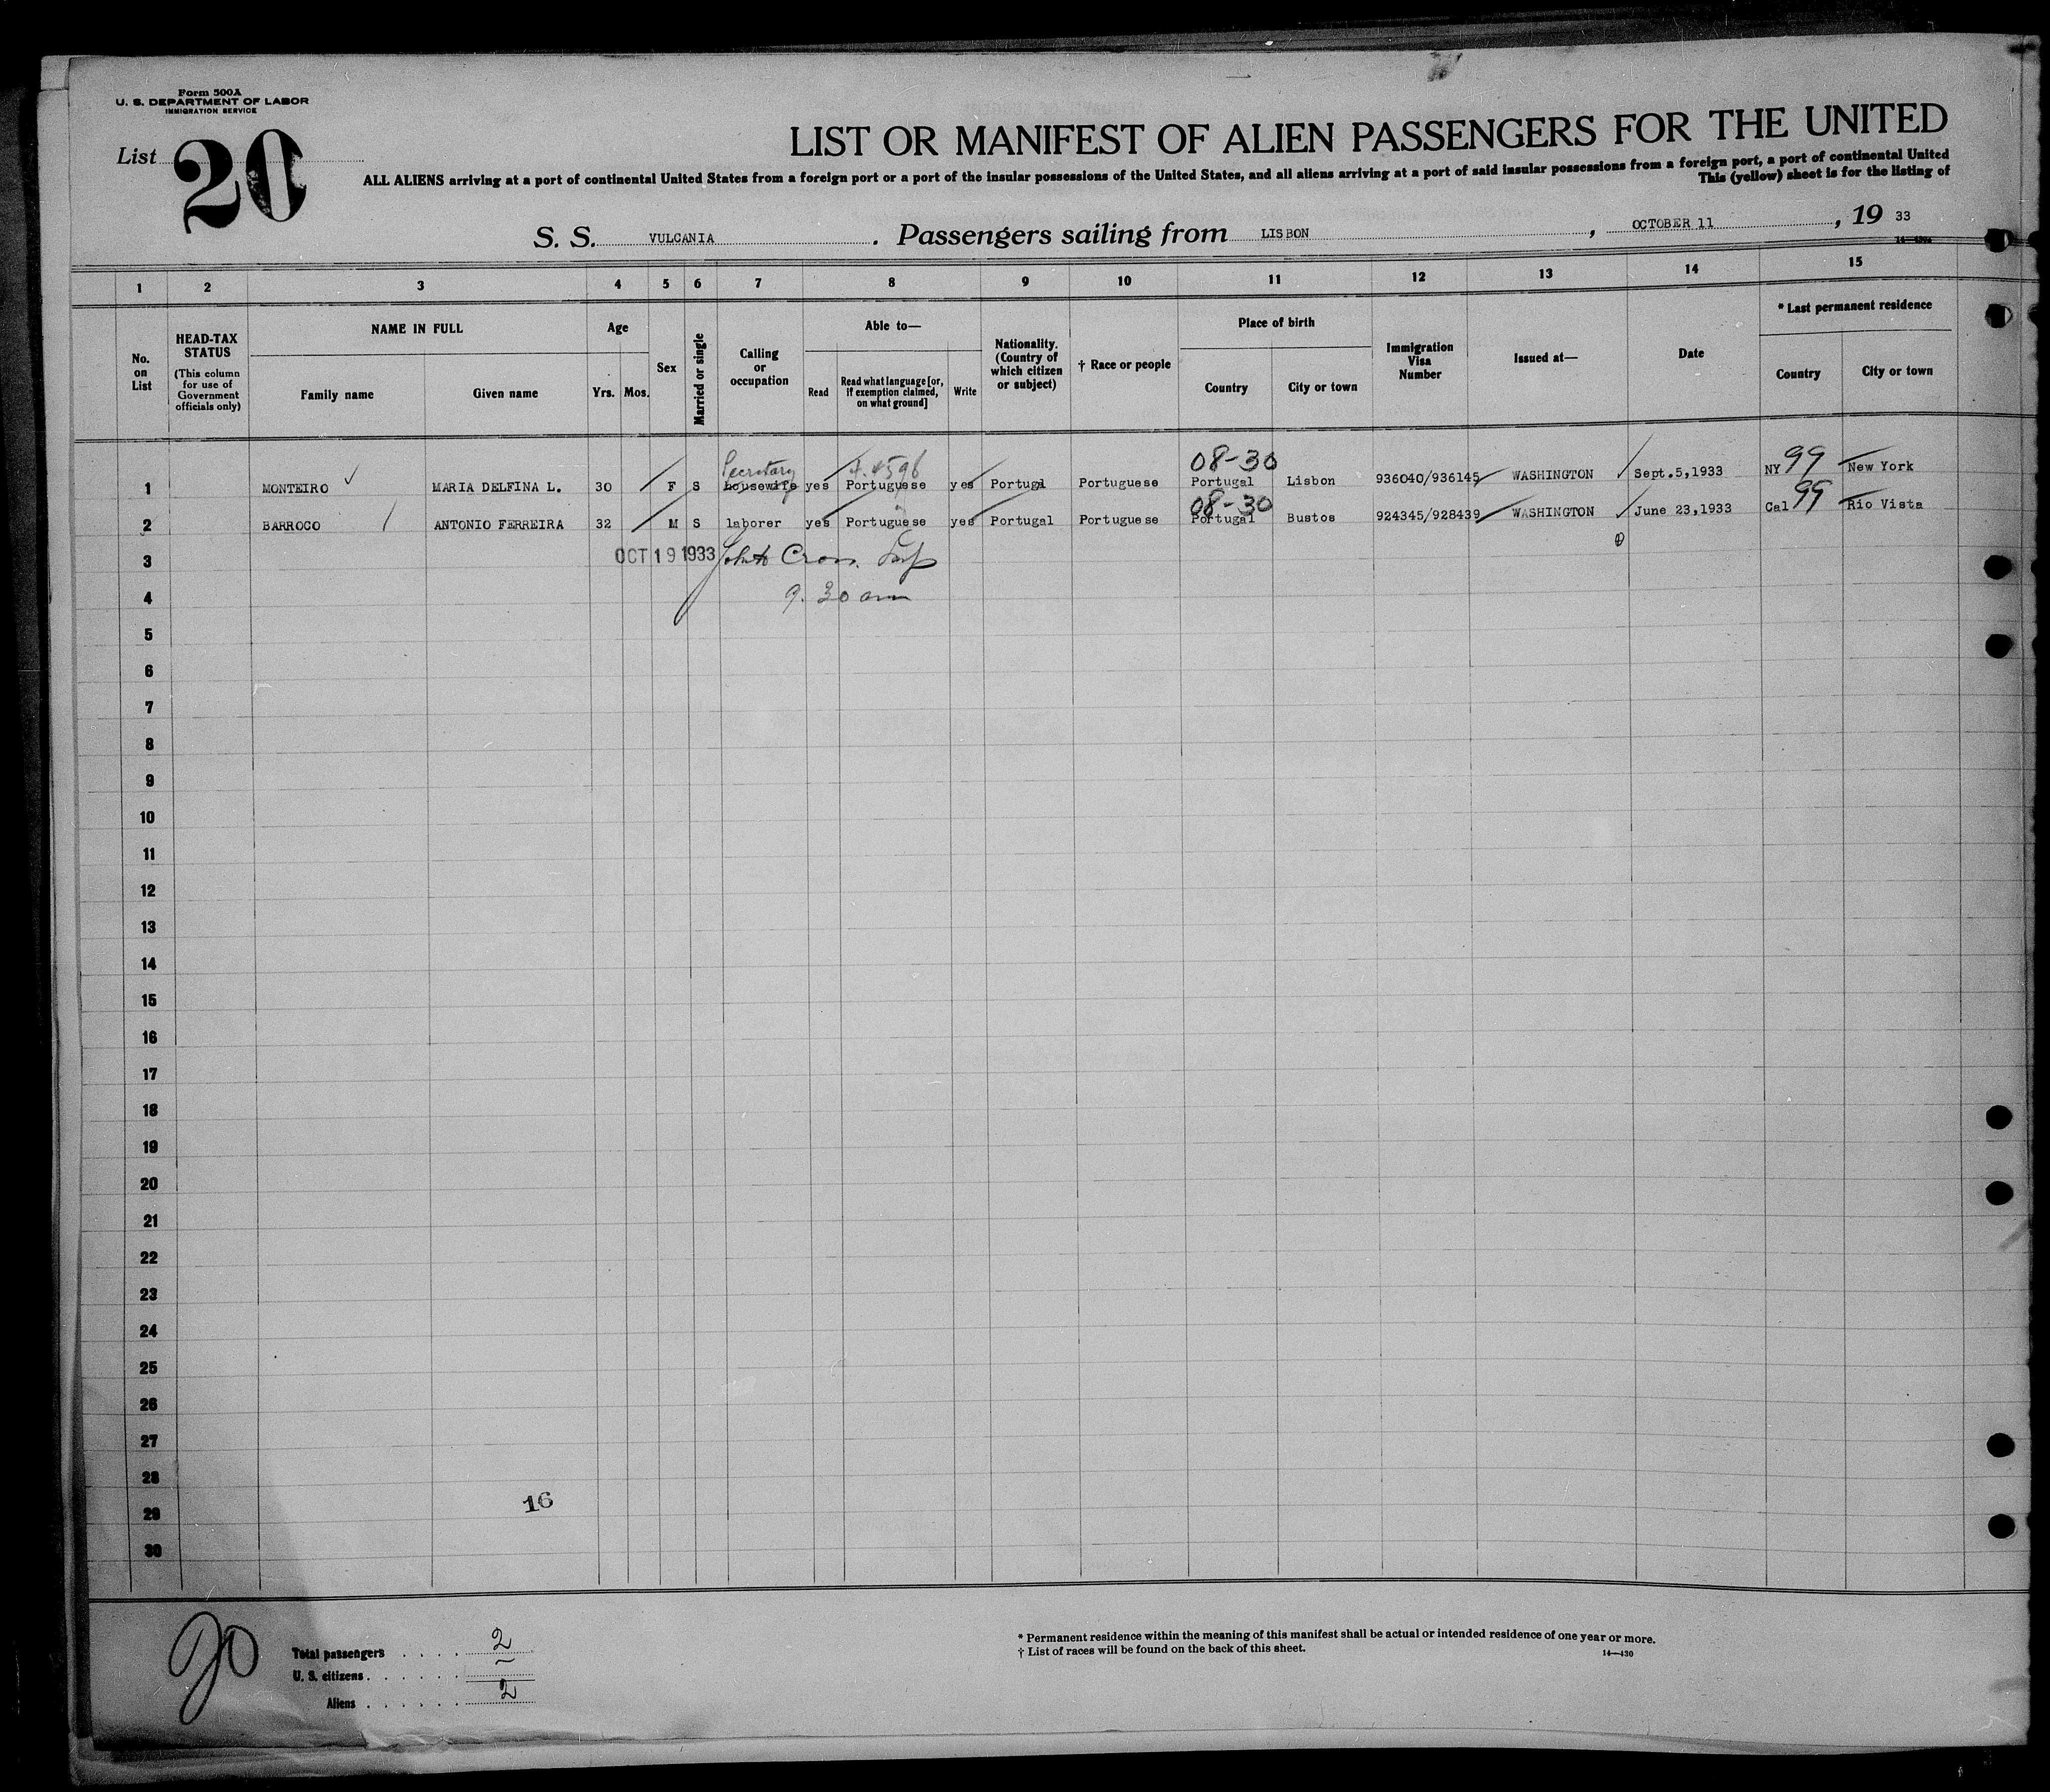 Form 500A
U. S. DEPARTMENT OF LABOR
IMMIGRATION SERVICE
List 20
LIST OR MANIFEST OF ALIEN PASSENGERS FOR THE UNITED
ALL ALIENS arriving at a port of continental United States from a foreign port or a port of the insular possessions of the United States, and all aliens arriving at a port of said insular possessions from a foreign port, a port of continental United
This (yellow) sheet is for the listing of
S. S. VULCANIA. Passengers sailing from LISBON, OCTOBER 11, 19 33
1 2 3 4 5 6 7 8 9 10 11 12 13 14 15
No. on List
HEAD-TAX STATUS
(This column for use of Government officials only)
NAME IN FULL
Family name
Given name
Age
Yrs. Mos.
Sex
Married or single
Calling or occupation
Able to—
Read
Read what language [or, if exemption claimed, on what ground]
Write
Nationality. (Country of which citizen or subject)
† Race or people
Place of birth
Country
City or town
Immigration Visa Number
Issued at—
Date
* Last permanent residence
Country
City or town
Secretary 08-30 99
1 MONTEIRO MARIA DELFINA L. 30 F S housewife yes Portuguese yes Portugl Portuguese Portugal Lisbon 936040/936145 WASHINGTON Sept.5,1933 NY New York
08-30 99
2 BARROCO ANTONIO FERREIRA 32 M S laborer yes Portuguese yes Portugal Portuguese Portugal Bustos 924345/928439 WASHINGTON June 23,1933 Cal Rio Vista
3 OCT 19 1933
4 9.30 am
5
6
7
8
9
10
11
12
13
14
15
16
17
18
19
20
21
22
23
24
25
26
27
28
29 16
30
20
Total passengers . . . . 2
U. S. citizens . . . . . .
Aliens . . . . . . 2
* Permanent residence within the meaning of this manifest shall be actual or intended residence of one year or more.
† List of races will be found on the back of this sheet.
14—430